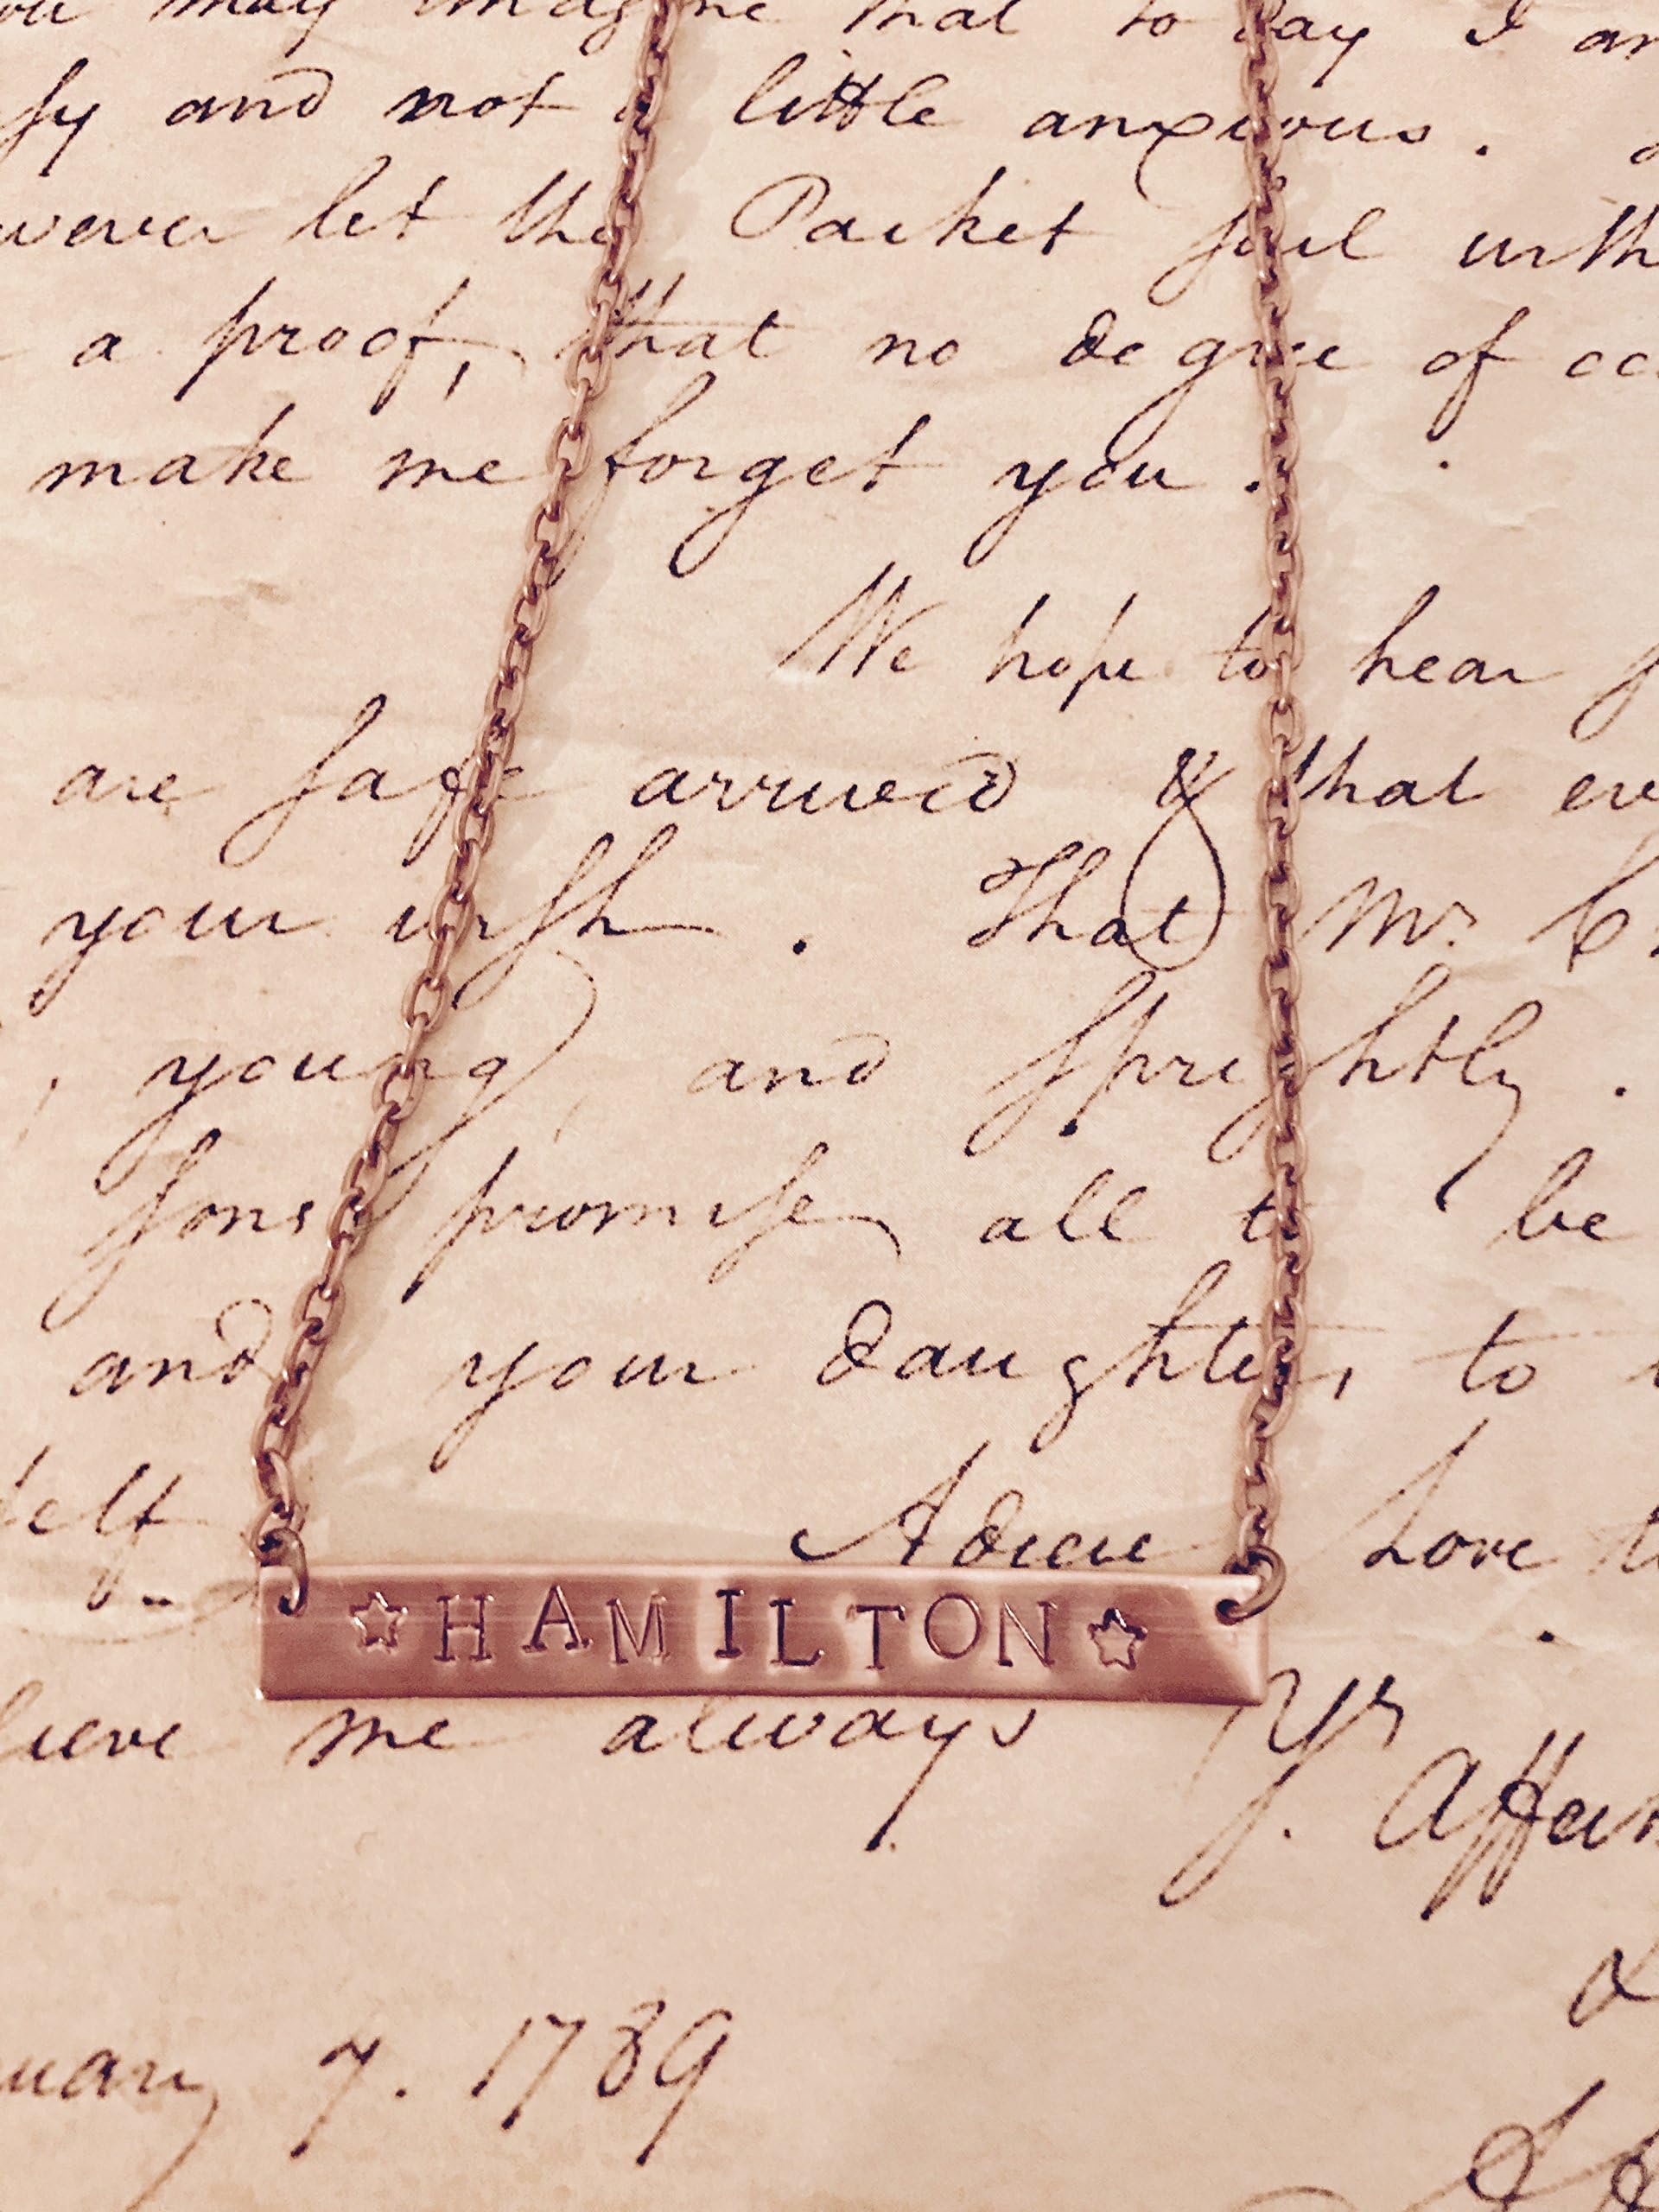 may imagine that to day I
and not a little anxious.
let the Packet sail
a proof, that no degree of
make me forget you.
We hope to hear
are safe arrived & that
your wish. That Mr. C
young and sprightly.
sons promise all to be
and your daughter, to
self Adieu Love
☆HAMILTON☆
me always Yr
Affect
7. 1789